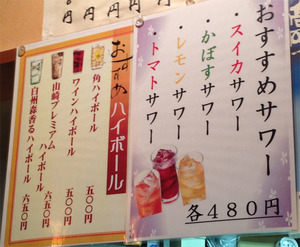 おすすめサワー
・スイカサワー
・かぼすサワー
・レモンサワー
・トマトサワー
各480円
おすすめ
ハイボール
角ハイボール 五〇〇円
ワインハイボール 五〇〇円
山崎プレミアム
ハイボール 六五〇円
白州森香るハイボール 六五〇円
円
円
円
円